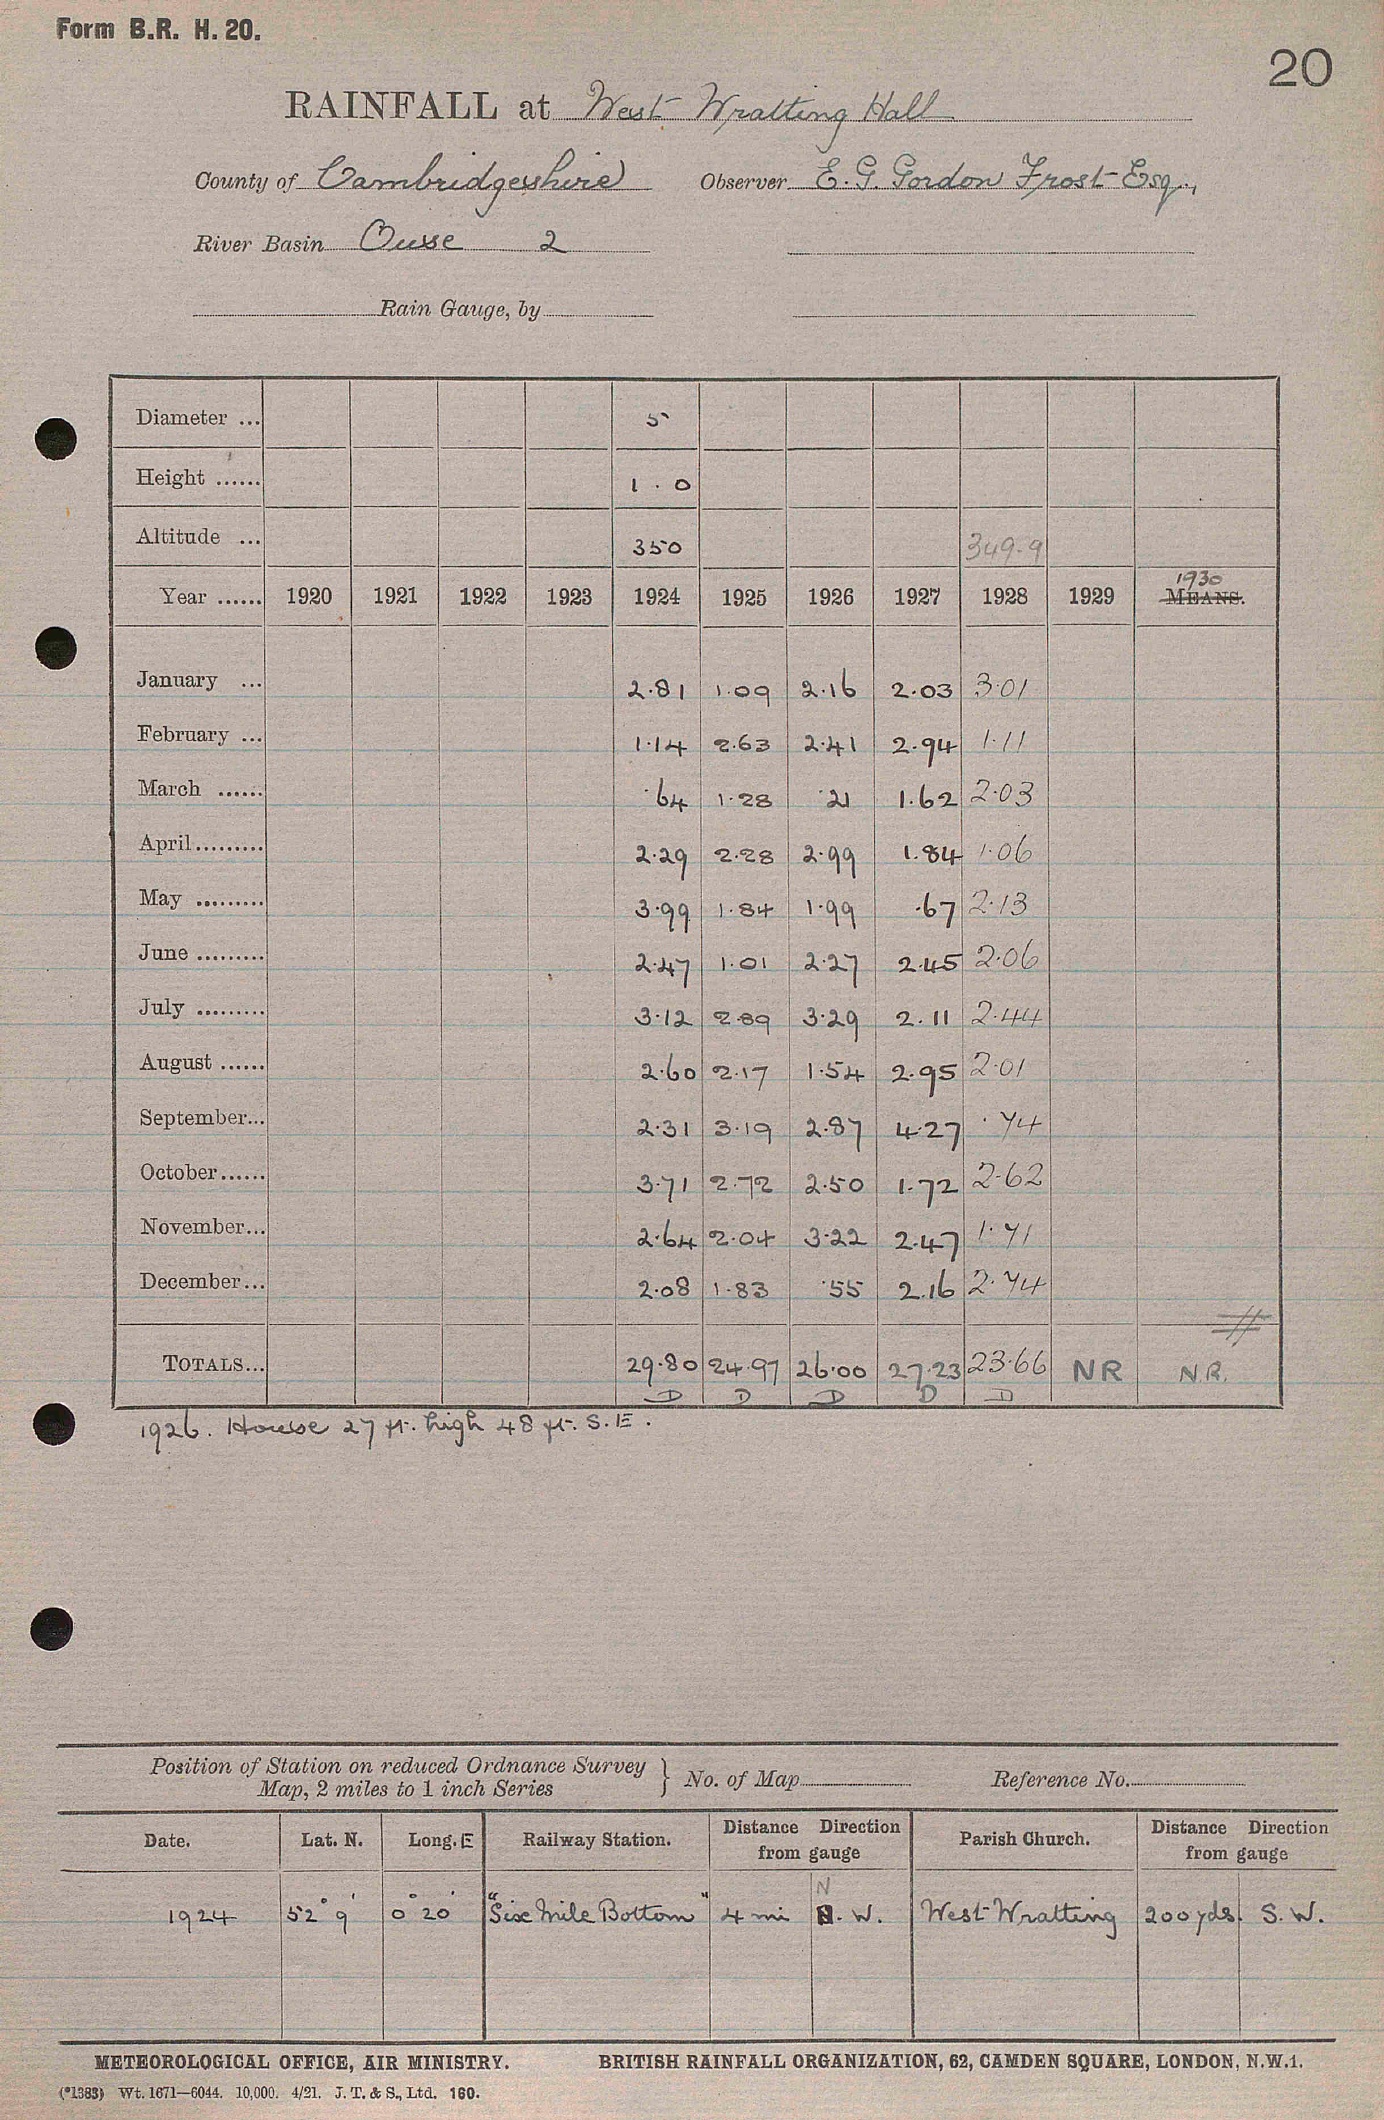 Form B.R. H. 20.
20
RAINFALL at West Wratting Hall
County of Cambridgeshire Observer E. G. Gordon Frost Esq.,
River Basin Ouse 2
Rain Gauge, by
Diameter ... 5
Height ...... 1 . 0
Altitude ... 350 349.9
1930
Year ...... 1920 1921 1922 1923 1924 1925 1926 1927 1928 1929 MEANS.
January ... 2.81 1.09 2.16 2.03 3.01
February ... 1.14 2.63 2.41 2.94 1.11
March ...... .64 1.28 .21 1.62 2.03
April......... 2.29 2.28 2.99 1.84 1.06
May ......... 3.99 1.84 1.99 .67 2.13
June ......... 2.47 1.01 2.27 2.45 2.06
July ......... 3.12 2.89 3.29 2.11 2.44
August ...... 2.60 2.17 1.54 2.95 2.01
September... 2.31 3.19 2.87 4.27 .74
October...... 3.71 2.72 2.50 1.72 2.62
November... 2.64 2.04 3.22 2.47 1.71
December... 2.08 1.83 .55 2.16 2.74
TOTALS... 29.80 24.97 26.00 27.23 23.66 NR N.R.
D D D D D
1926. House 27 ft. high 48 ft. S.E.
Position of Station on reduced Ordnance Survey
Map, 2 miles to 1 inch Series } No. of Map Reference No.
Date. Lat. N. Long. E Railway Station. Distance Direction from gauge Parish Church. Distance Direction from gauge
N
1924 52° 9' 0° 20' "Six Mile Bottom" 4 mi . W. West Wratting 200 yds. S. W.
METEOROLOGICAL OFFICE, AIR MINISTRY. BRITISH RAINFALL ORGANIZATION, 62, CAMDEN SQUARE, LONDON, N.W.1.
(*1383) Wt. 1671—6044. 10,000. 4/21. J. T. & S., Ltd. 160.